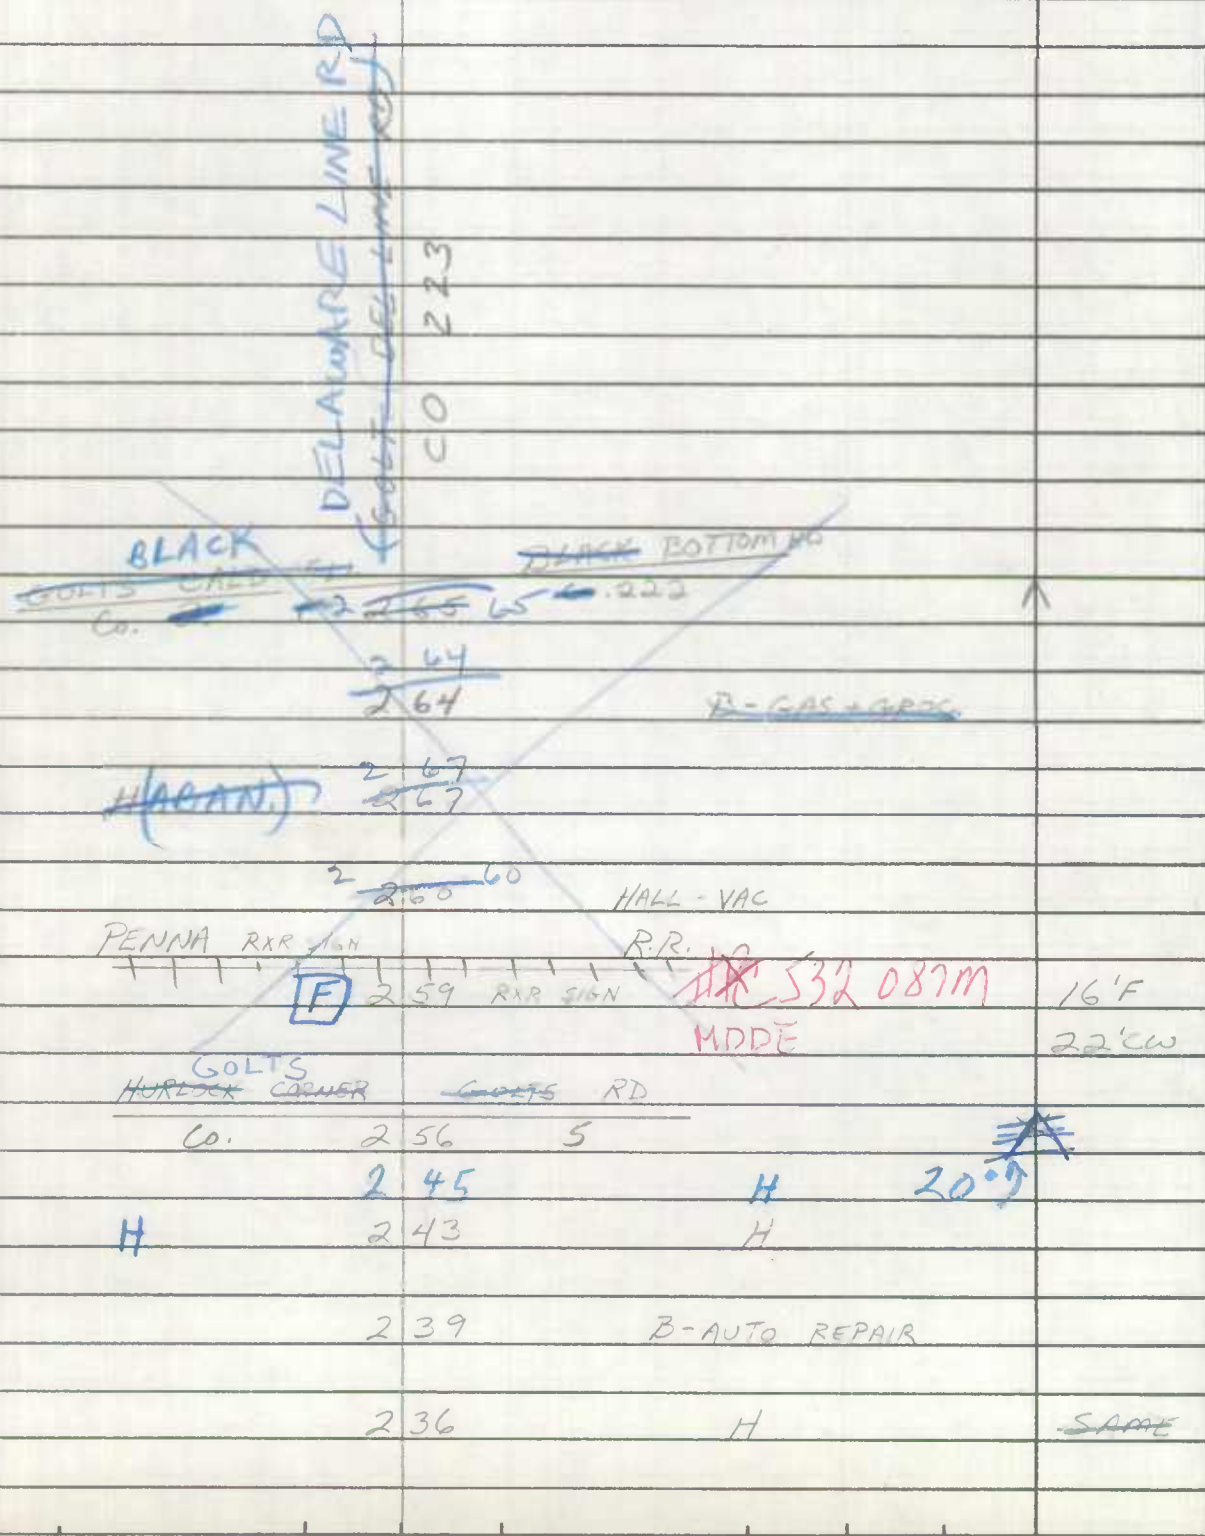 DELAWARE LINE RD
(GOLT - DEL LINE RD)
CO 223
BLACK BLACK BOTTOM RD
GOLTS CALD
Co. 2 2 65 65 .222
2 64
2 64 B-GAS + GROC.
2 67
H(ABAN.) 2 67
2 260 60 HALL - VAC
PENNA RXR SIGN R.R.
F 2 59 RXR SIGN 532 087M 16'F
MDDE 22'CW
GOLTS
HURLOCK CORNER GOLTS RD
Co. 2 56 5
2 45 H 20'
H 2 43 H
2 39 B-AUTO REPAIR
2 36 H SAME